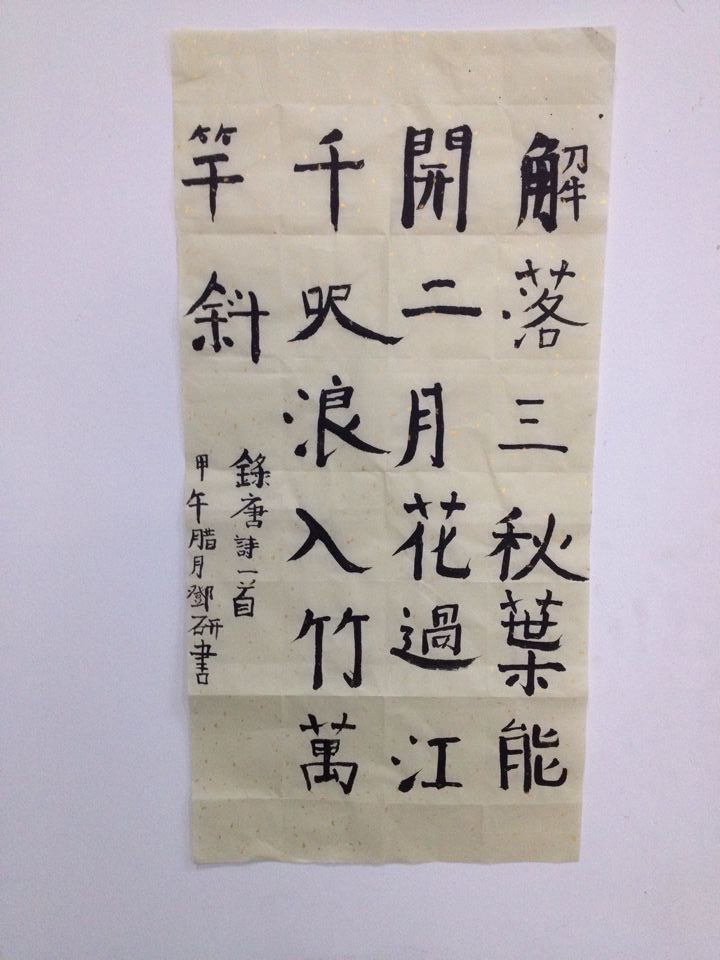 解落三秋葉能
開二月花過江
千尺浪入竹萬
竿斜
錄唐詩一首
甲午腊月鄧研書